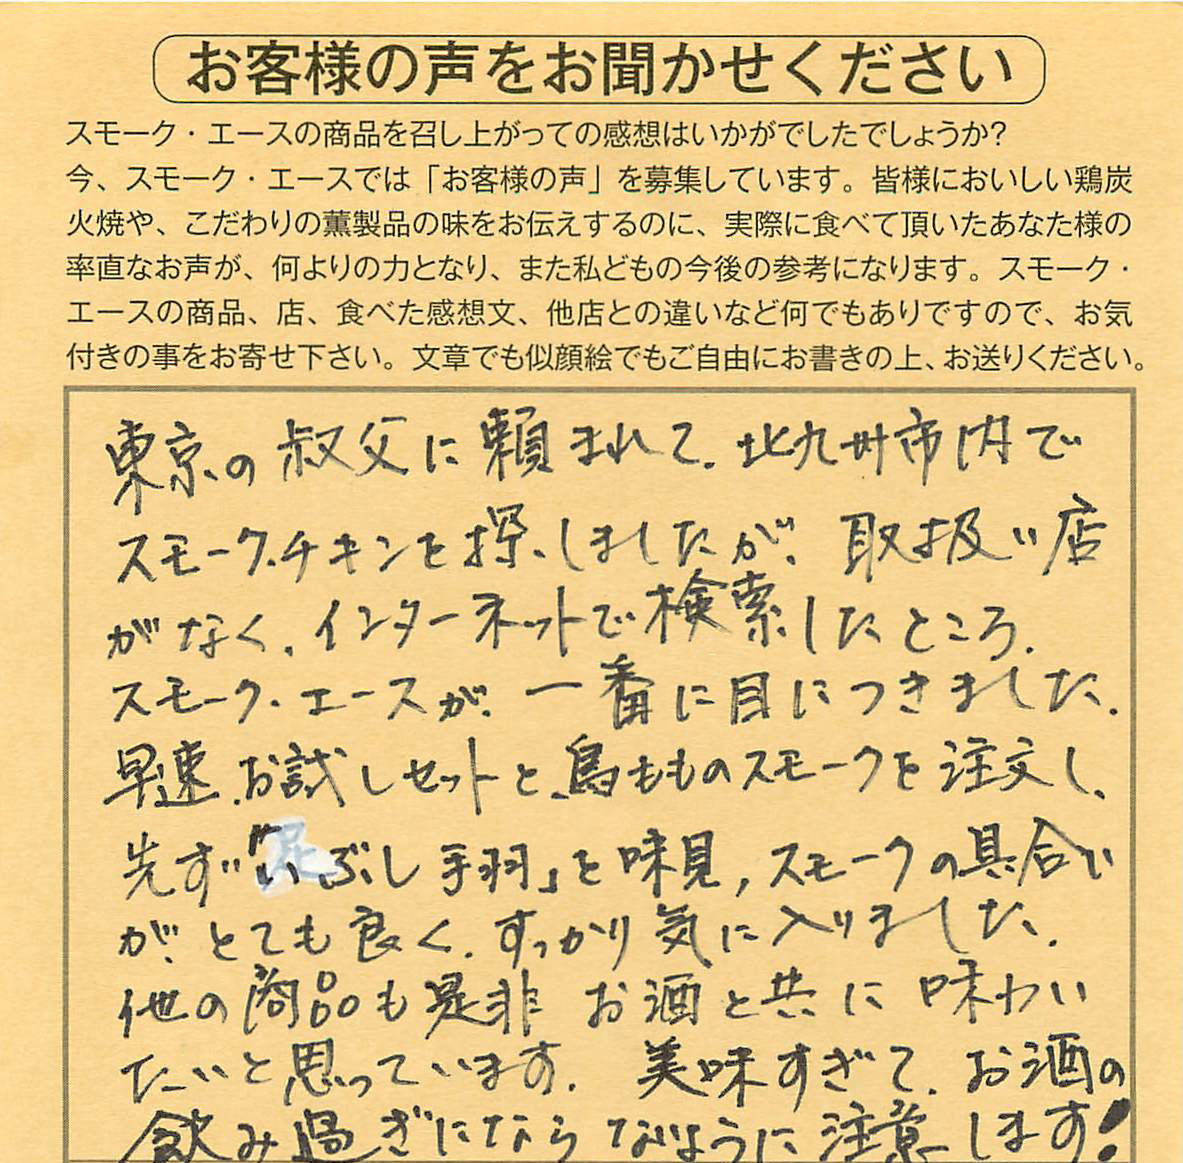 お客様の声をお聞かせください
スモーク・エースの商品を召し上がっての感想はいかがでしたでしょうか?
今、スモーク・エースでは「お客様の声」を募集しています。皆様においしい鶏炭
火焼や、こだわりの薫製品の味をお伝えするのに、実際に食べて頂いたあなた様の
率直なお声が、何よりの力となり、また私どもの今後の参考になります。スモーク・
エースの商品、店、食べた感想文、他店との違いなど何でもありですので、お気
付きの事をお寄せ下さい。文章でも似顔絵でもご自由にお書きの上、お送りください。
東京の叔父に頼まれて、北九州市内で
スモーク・チキンを探しましたが、取扱い店
がなく、インターネットで検索したところ、
スモーク・エースが、一番に目につきました。
早速、お試しセットと、鳥もものスモークを注文し、
先ず「いぶし手羽」を味見，スモークの具合い
が、とても良く、すっかり気に入りました。
他の商品も是非お酒と共に味わい
たいと思っています。美味すぎて、お酒の
飲み過ぎにならなように注意します!